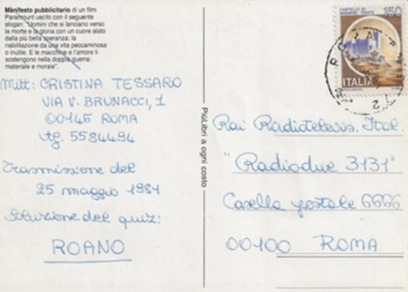 Manifesto pubblicitario di un film
Paramount uscito con il seguente
slogan: "Uomini che si lanciano verso
la morte e la gloria con un cuore alato
dalla più bella speranza: la
riabilitazione da una vita peccaminosa
o inutile. E le macchine e l'amore li
sostengono nella doppia guerra:
materiale e morale".
Mitt: CRISTINA TESSARO
VIA V. BRUNACCI, 1
00145 ROMA
tg. 5584494
Trasmissione del
25 maggio 1984
Soluzione del quiz:
ROANO
PiùLibri a ogni costo
150
ITALIA
Rai Radiotelevis. Ital.
"Radiodue 3131"
Casella postale 6666
00100 ROMA